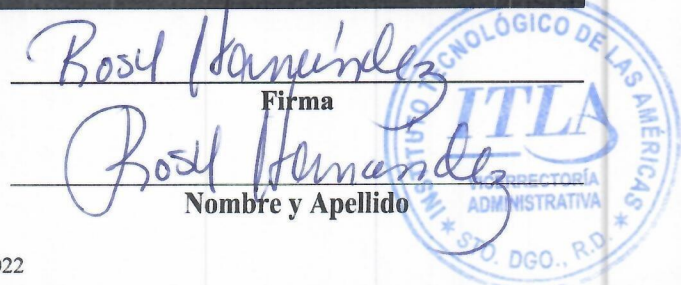 Rosy Hernández
Firma
Rosy Hernandez
Nombre y Apellido
INSTITUTO TECNOLÓGICO DE LAS AMÉRICAS
ITLA
VICERRECTORÍA
ADMINISTRATIVA
* STO. DGO., R.D. *
022